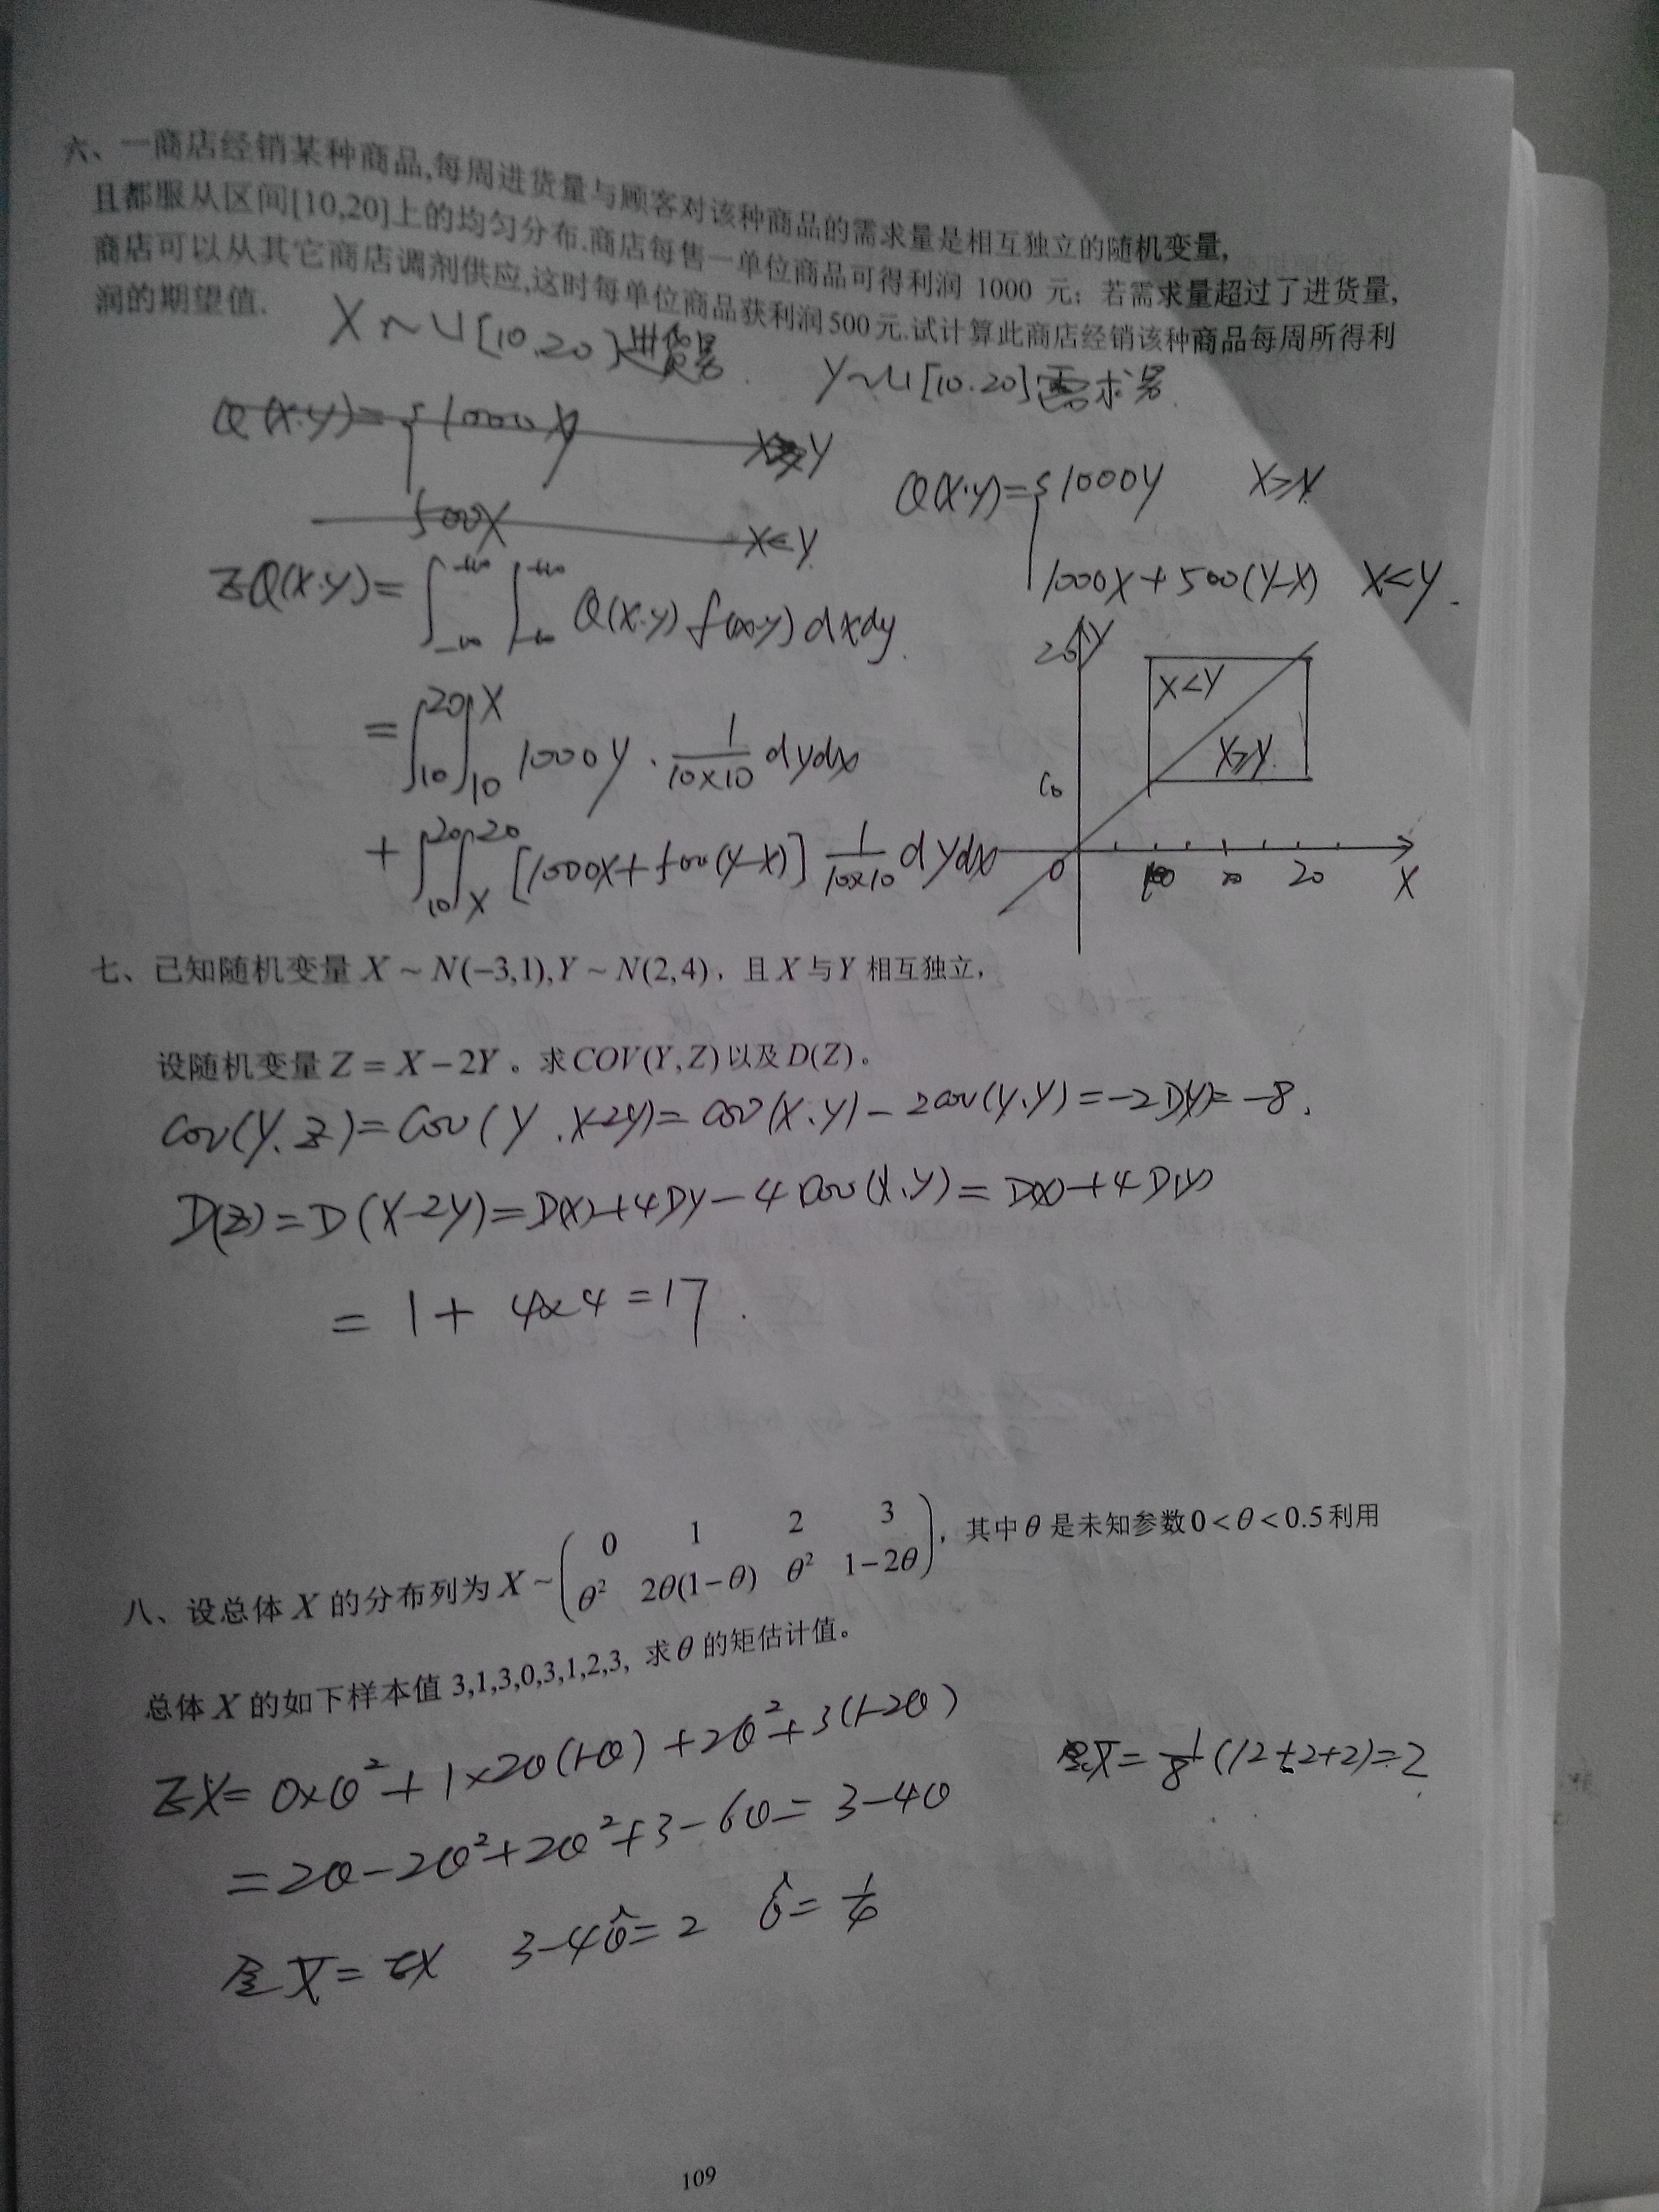 六、一商店经销某种商品,每周进货量与顾客对该种商品的需求量是相互独立的随机变量,
且都服从区间[10,20]上的均匀分布.商店每售一单位商品可得利润 1000 元; 若需求量超过了进货量,
商店可以从其它商店调剂供应,这时每单位商品获利润500元.试计算此商店经销该种商品每周所得利
润的期望值.
X~U[10.20]进货量.
Y~U[10.20]需求量.
Q(X.Y)={1000Y X≥Y
1000X+500(Y-X) X<Y.
EQ(X.Y)=∫_{-∞}^{+∞}∫_{-∞}^{+∞} Q(X.Y) f(x.y) dxdy.
=∫_{10}^{20}∫_{10}^{X} 1000Y · \frac{1}{10×10} dydx
+∫_{10}^{20}∫_{X}^{20} [1000X+500(Y-X)] \frac{1}{10×10} dydx
20 Y
X<Y
X≥Y
10
0 10 20 X
七、已知随机变量 X ~ N(−3,1),Y ~ N(2,4), 且 X 与 Y 相互独立,
设随机变量 Z = X − 2Y 。求COV(Y,Z)以及D(Z)。
Cov(Y.Z)=Cov(Y.X-2Y)=Cov(X.Y)-2cov(Y.Y)=-2D(Y)=-8.
D(Z)=D(X-2Y)=D(X)+4DY-4Cov(X.Y)=D(X)+4D(Y)
=1+4×4=17.
0 1 2 3
八、设总体 X 的分布列为 X ~ (θ² 2θ(1−θ) θ² 1−2θ), 其中θ 是未知参数0<θ<0.5利用
总体 X 的如下样本值 3,1,3,0,3,1,2,3, 求θ 的矩估计值。
EX=0×θ²+1×2θ(1-θ)+2θ²+3(1-2θ)
=2θ-2θ²+2θ²+3-6θ=3-4θ
X̄=\frac{1}{8}(12+2+2)=2
令X̄=EX 3-4θ̂=2 θ̂=\frac{1}{4}
109